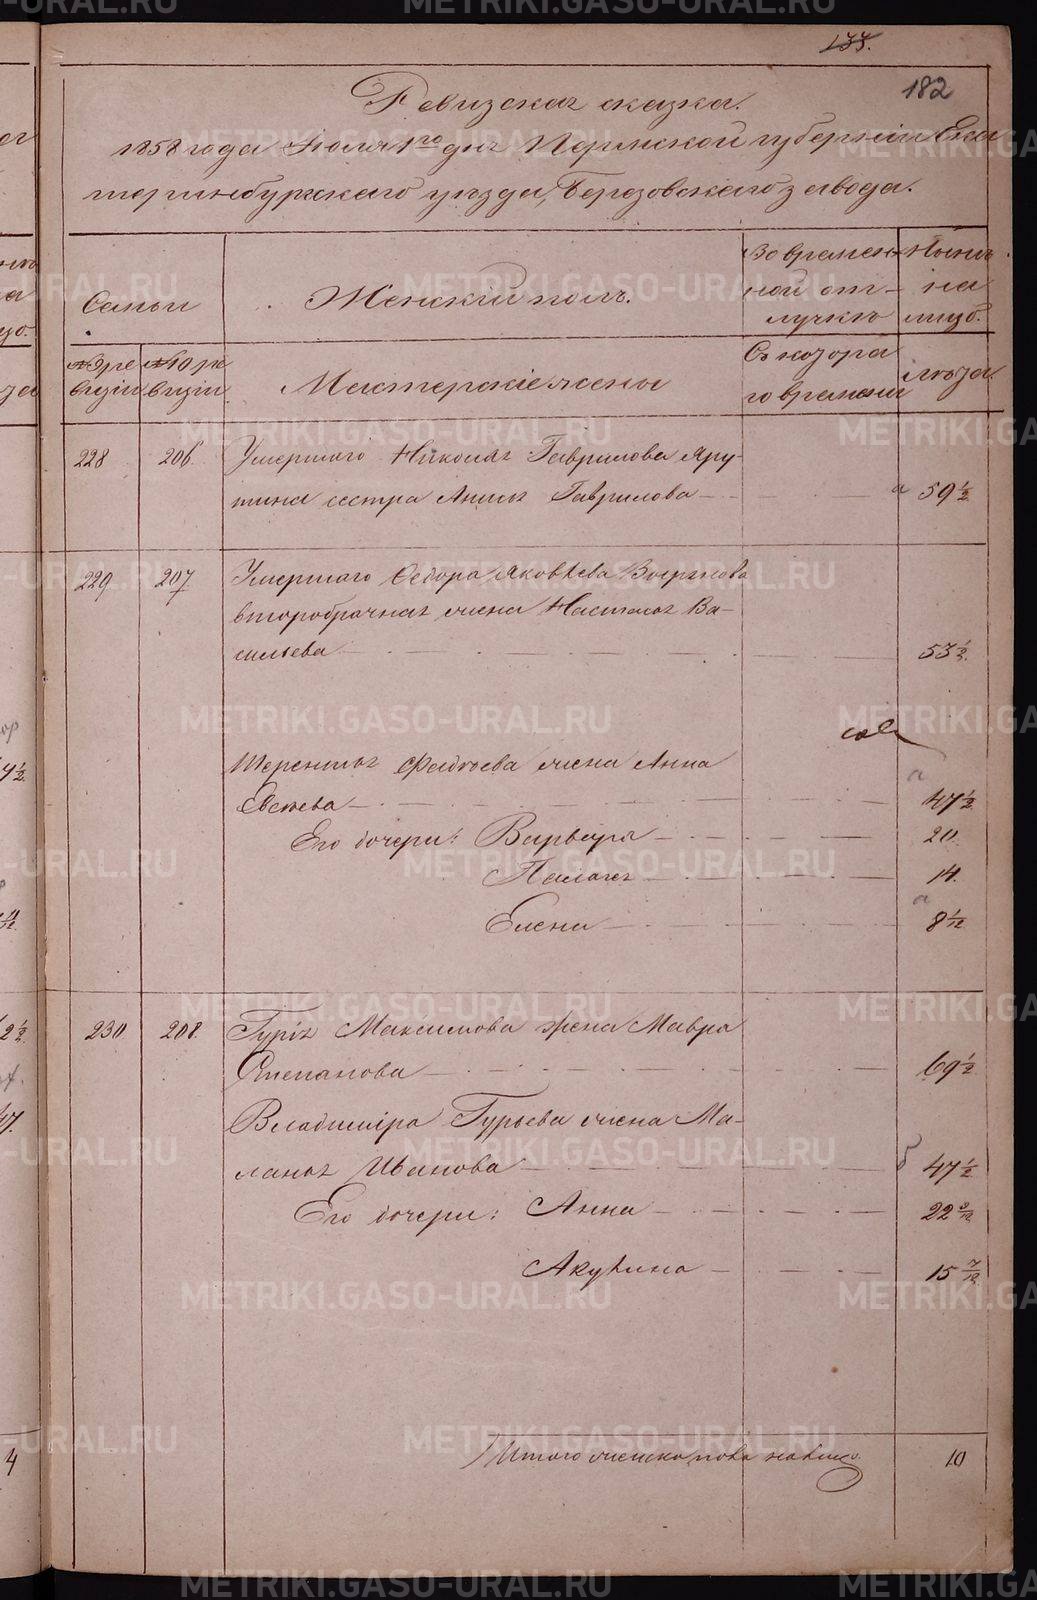 133.
182
Ревизская сказка.
1858 года Июля 1го дня Пермской губернии Ека
теринбургского уезда, Березовского завода.
Семьи
Женский полъ.
Во времен-
ной от-
лучкѣ
Нынѣ
на
лицо.
№ 9 ре
визіи
№ 10 ре
визіи
Мастерскіе жены
Съ котора
го времени
лѣта.
228 206. Умершаго Николая Гаврилова Яру-
тина сестра Анна Гаврилова — а 59 1/2
229 207 Умершаго Федора Яковлева
второбрачная жена Настасья Ва-
сильева — 53 1/2
Терентья жена Анна
— а 47 1/2
Его дочери: Варвара — 20.
Палагея — 14.
а
Елена — 8 1/12
230 208. Гурія Максимова жена Мавра
Степанова — 69 1/2
Владиміра Гурьева жена Ма-
ланья Иванова — б 47 1/2
Его дочери: Анна — 22 3/12
Акулина — 15 7/12
Итого женска пола на лицо. 10
METRIKI.GASO-URAL.RU